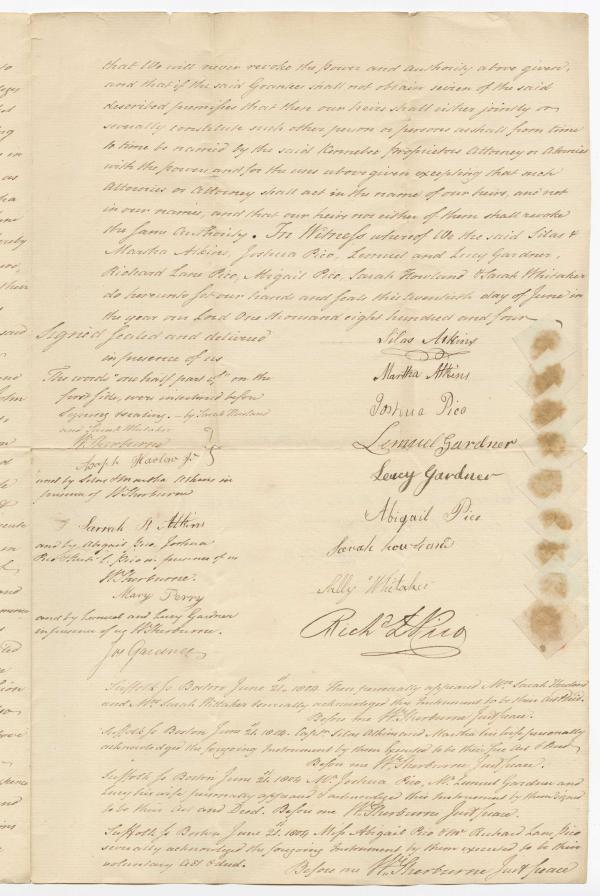 that We will never revoke the power and authority above given,
and that if the said Grantees shall not obtain seizen of the said
described premises that then our heirs shall either jointly or
severally constitute such other person or persons as shall from time
to time be named by the said Kennebec Proprietors Attorney or Attornies
with the powers and for the uses above given excepting that such
Attornies or Attorney shall act in the name of our heirs, and not
in our names, and that our heirs nor either of them shall revoke
the same Authority. In Witness whereof We the said Silas &
Martha Atkins, Joshua Pico, Lemuel and Lucy Gardner,
Richard Lane Pico, Abigail Pico, Sarah Howland & Sarah Whitaker
do hereunto set our hands and seals this twentieth day of June in
the year our Lord One thousand eight hundred and four
Signed Sealed and delivered
in presence of us
The words "one half part of" on the
first side, were interlined before
Signing & sealing. - by Sarah Howland
and Sarah Whitaker
Wm Sherburne
Joseph Harlow Jr
and by Silas & Martha Atkins in
presence of Wm Sherburne
Sarah H Atkin
and by Abigail Pico, Joshua
Pico & Richd L Pico in presence of us
Wm Sherburne.
Mary Perry
and by Lemuel and Lucy Gardner
in presence of us Wm Sherburne.
Jos Gardner
Silas Atkins
Martha Atkins
Joshua Pico
Lemuel Gardner
Lucy Gardner
Abigail Pico
Sarah howland
Sally Whitaker
Richd L Pico
Suffolk ss Boston June 21. 1804 Then personally appeared Mrs Sarah Howland
and Mrs Sarah Whitaker severally acknowledged this Instrument to be their Act & Deed.
Before me Wm Sherburne Just peace.
Suffolk ss Boston June 1804. Capt Silas Atkins and Martha his wife personally
acknowledged the foregoing Instrument by them Executed to be their free Act & Deed
Before me Wm Sherburne Just peace.
Suffolk ss Boston June 1804 Mr Joshua Pico, Mr Lemuel Gardner and
Lucy his wife personally appeared & acknowledged this instrument by them signed
to be their Act and Deed. Before me Wm Sherburne Just peace
Suffolk ss Boston June 1804 Miss Abigail Pico & Mr Richard Lane Pico
severally acknowledged the foregoing Instrument by them executed to be their
voluntary Act & deed. Before me Wm Sherburne Just peace